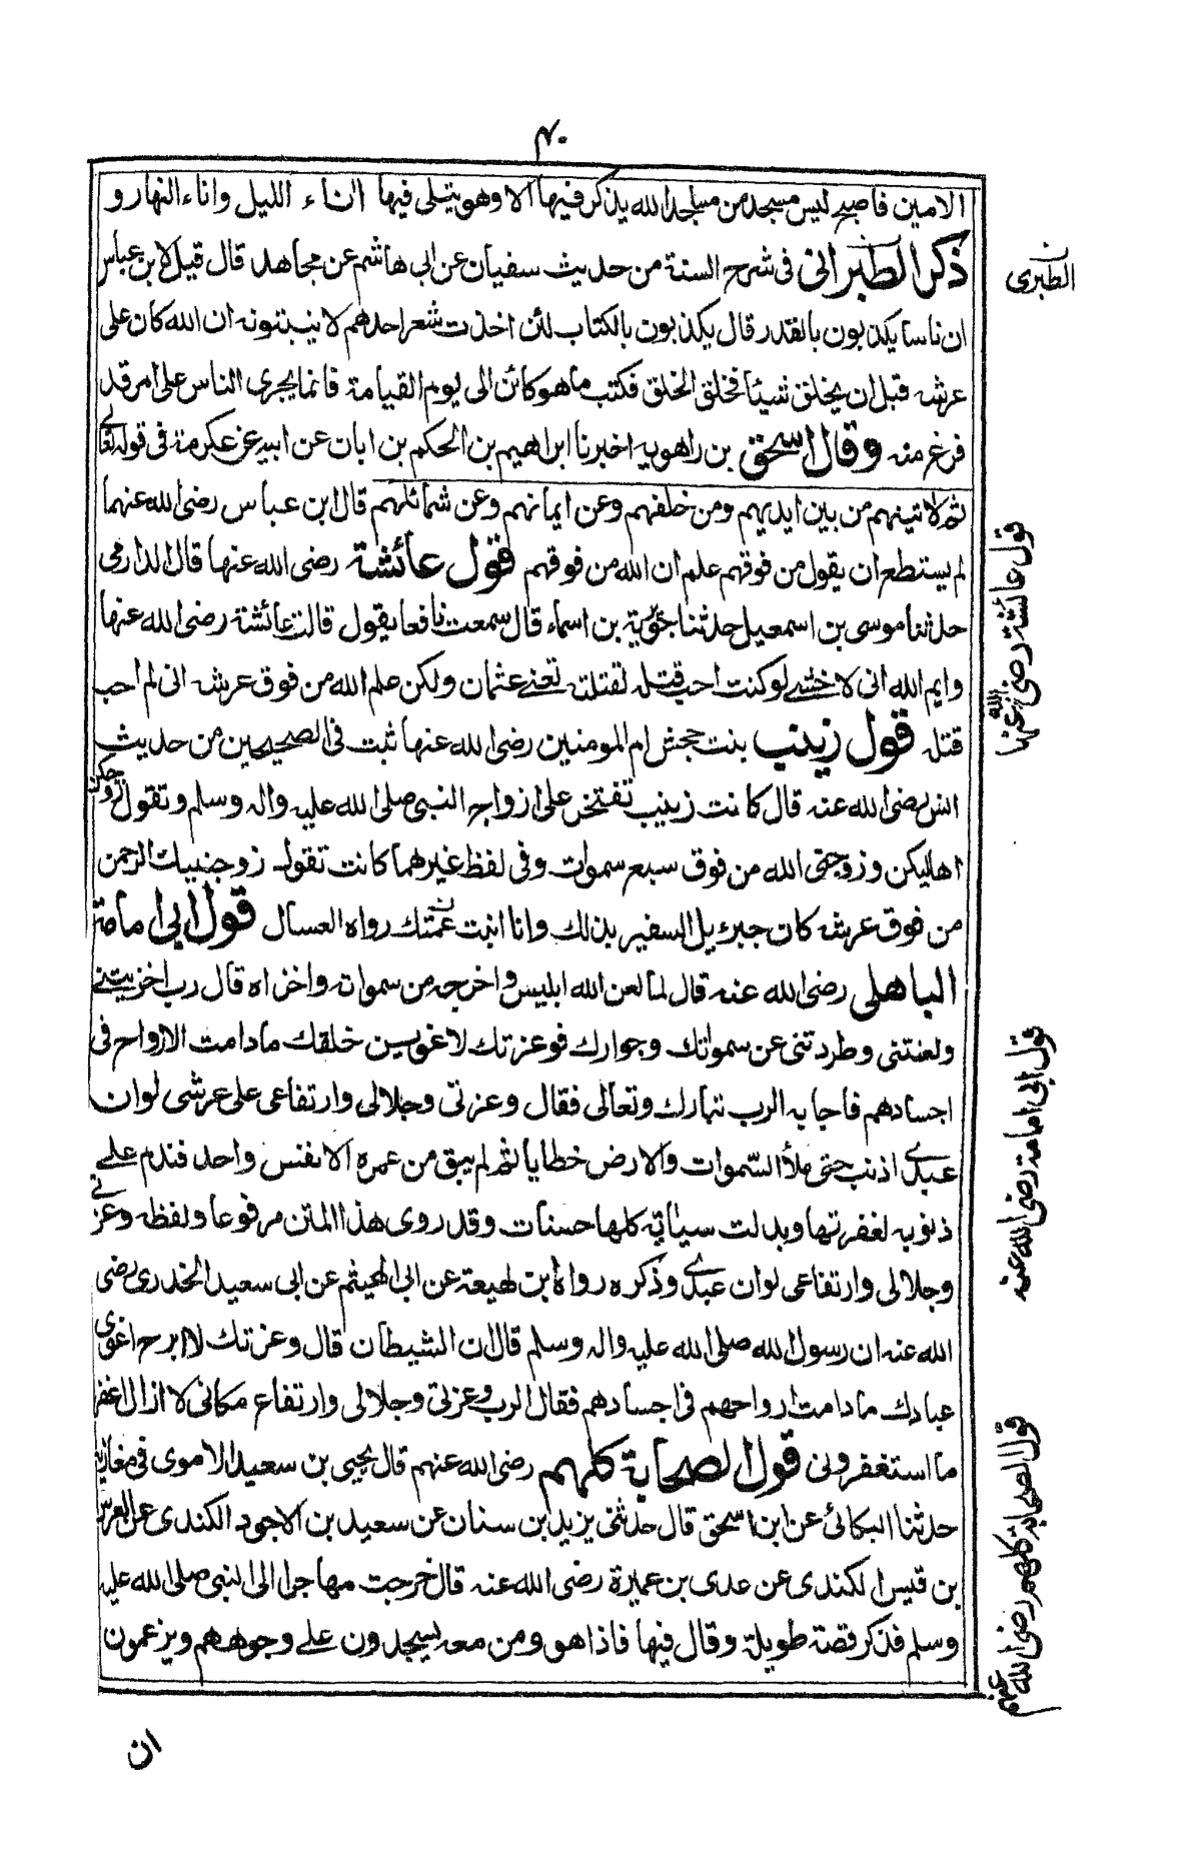 ٤٠
الامين فاصبح ليس مسجد من مساجد الله يذكر فيها الا وهو يتلى فيها اناء الليل واناء النهار و
ذكر الطبرانى فى شرح السنة من حديث سفيان عن ابى هاشم عن مجاهد قال قيل لابن عباس
ان ناسا يكذبون بالقدر قال يكذبون بالكتاب لئن اخذت شعر احدهم لا ينبتونه ان الله كان على
عرشه قبل ان يخلق شيئا فخلق الخلق فكتب ما هو كائن الى يوم القيامة فانما يجرى الناس على امر قد
فرغ منه وقال اسحق بن راهويه اخبرنا ابراهيم بن الحكم بن ابان عن ابيه عن عكرمة فى قوله تعالى
ثم لاتينهم من بين ايديهم ومن خلفهم وعن ايمانهم وعن شمائلهم قال ابن عباس رضى الله عنهما
لم يستطع ان يقول من فوقهم علم ان الله من فوقهم قول عائشة رضى الله عنها قال الدارمى
حدثنا موسى بن اسمعيل حدثنا جويرية بن اسماء قال سمعت نافعا يقول قالت عائشة رضى الله عنها
وايم الله انى لاخشى لو كنت احب قتله لقتلته تعنى عثمان ولكن علم الله من فوق عرشه انى لم احب
قتله قول زينب بنت جحش ام المومنين رضى الله عنها ثبت فى الصحيحين من حديث
انس رضى الله عنه قال كانت زينب تفتخر على ازواج النبى صلى الله عليه واله وسلم وتقول زوجكن
اهاليكن وزوجنى الله من فوق سبع سموات وفى لفظ غيرهما كانت تقول زوجنيك الرحمن
من فوق عرشه كان جبرئيل السفير بذلك وانا ابنت عمتك رواه العسال قول ابى امامة
الباهلى رضى الله عنه قال لما لعن الله ابليس واخرجه من سمواته واخزاه قال رب اخزيتنى
ولعنتنى وطردتنى عن سمواتك وجوارك فوعزتك لاغوين خلقك مادامت الارواح فى
اجسادهم فاجابه الرب تبارك وتعالى فقال وعزتى وجلالى وارتفاعى على عرشى لوان
عبدى اذنب حتى ملأ السموات والارض خطايا ثم لم يبق من عمره الا نفس واحد فندم على
ذنوبه لغفرتها وبدلت سياته كلها حسنات وقد روى هذا المتن مرفوعا ولفظه وعزتى
وجلالى وارتفاعى لوان عبدى وذكره رواه ابن لهيعة عن ابى الهيثم عن ابى سعيد الخدرى رضى
الله عنه ان رسول الله صلى الله عليه واله وسلم قال ان الشيطان قال وعزتك لا ابرح اغوى
عبادك مادامت ارواحهم فى اجسادهم فقال الرب وعزتى وجلالى وارتفاع مكانى لا ازال اغفر
ما استغفرونى قول الصحابة كلهم رضى الله عنهم قال يحيى بن سعيد الاموى فى مغازيه
حدثنا البكائى عن ابن اسحق قال حدثنى يزيد بن سنان عن سعيد بن الاجود الكندى عن العرس
بن قيس الكندى عن عدى بن عميرة رضى الله عنه قال خرجت مهاجرا الى النبى صلى الله عليه
وسلم فذكر قصة طويلة وقال فيها فاذا هو ومن معه يسجدون على وجوههم ويزعمون
ان
الطبرى ن
قول عائشة رضى الله عنها
قول ابى امامة رضى الله عنه
قول الصحابة كلهم رضى الله عنهم